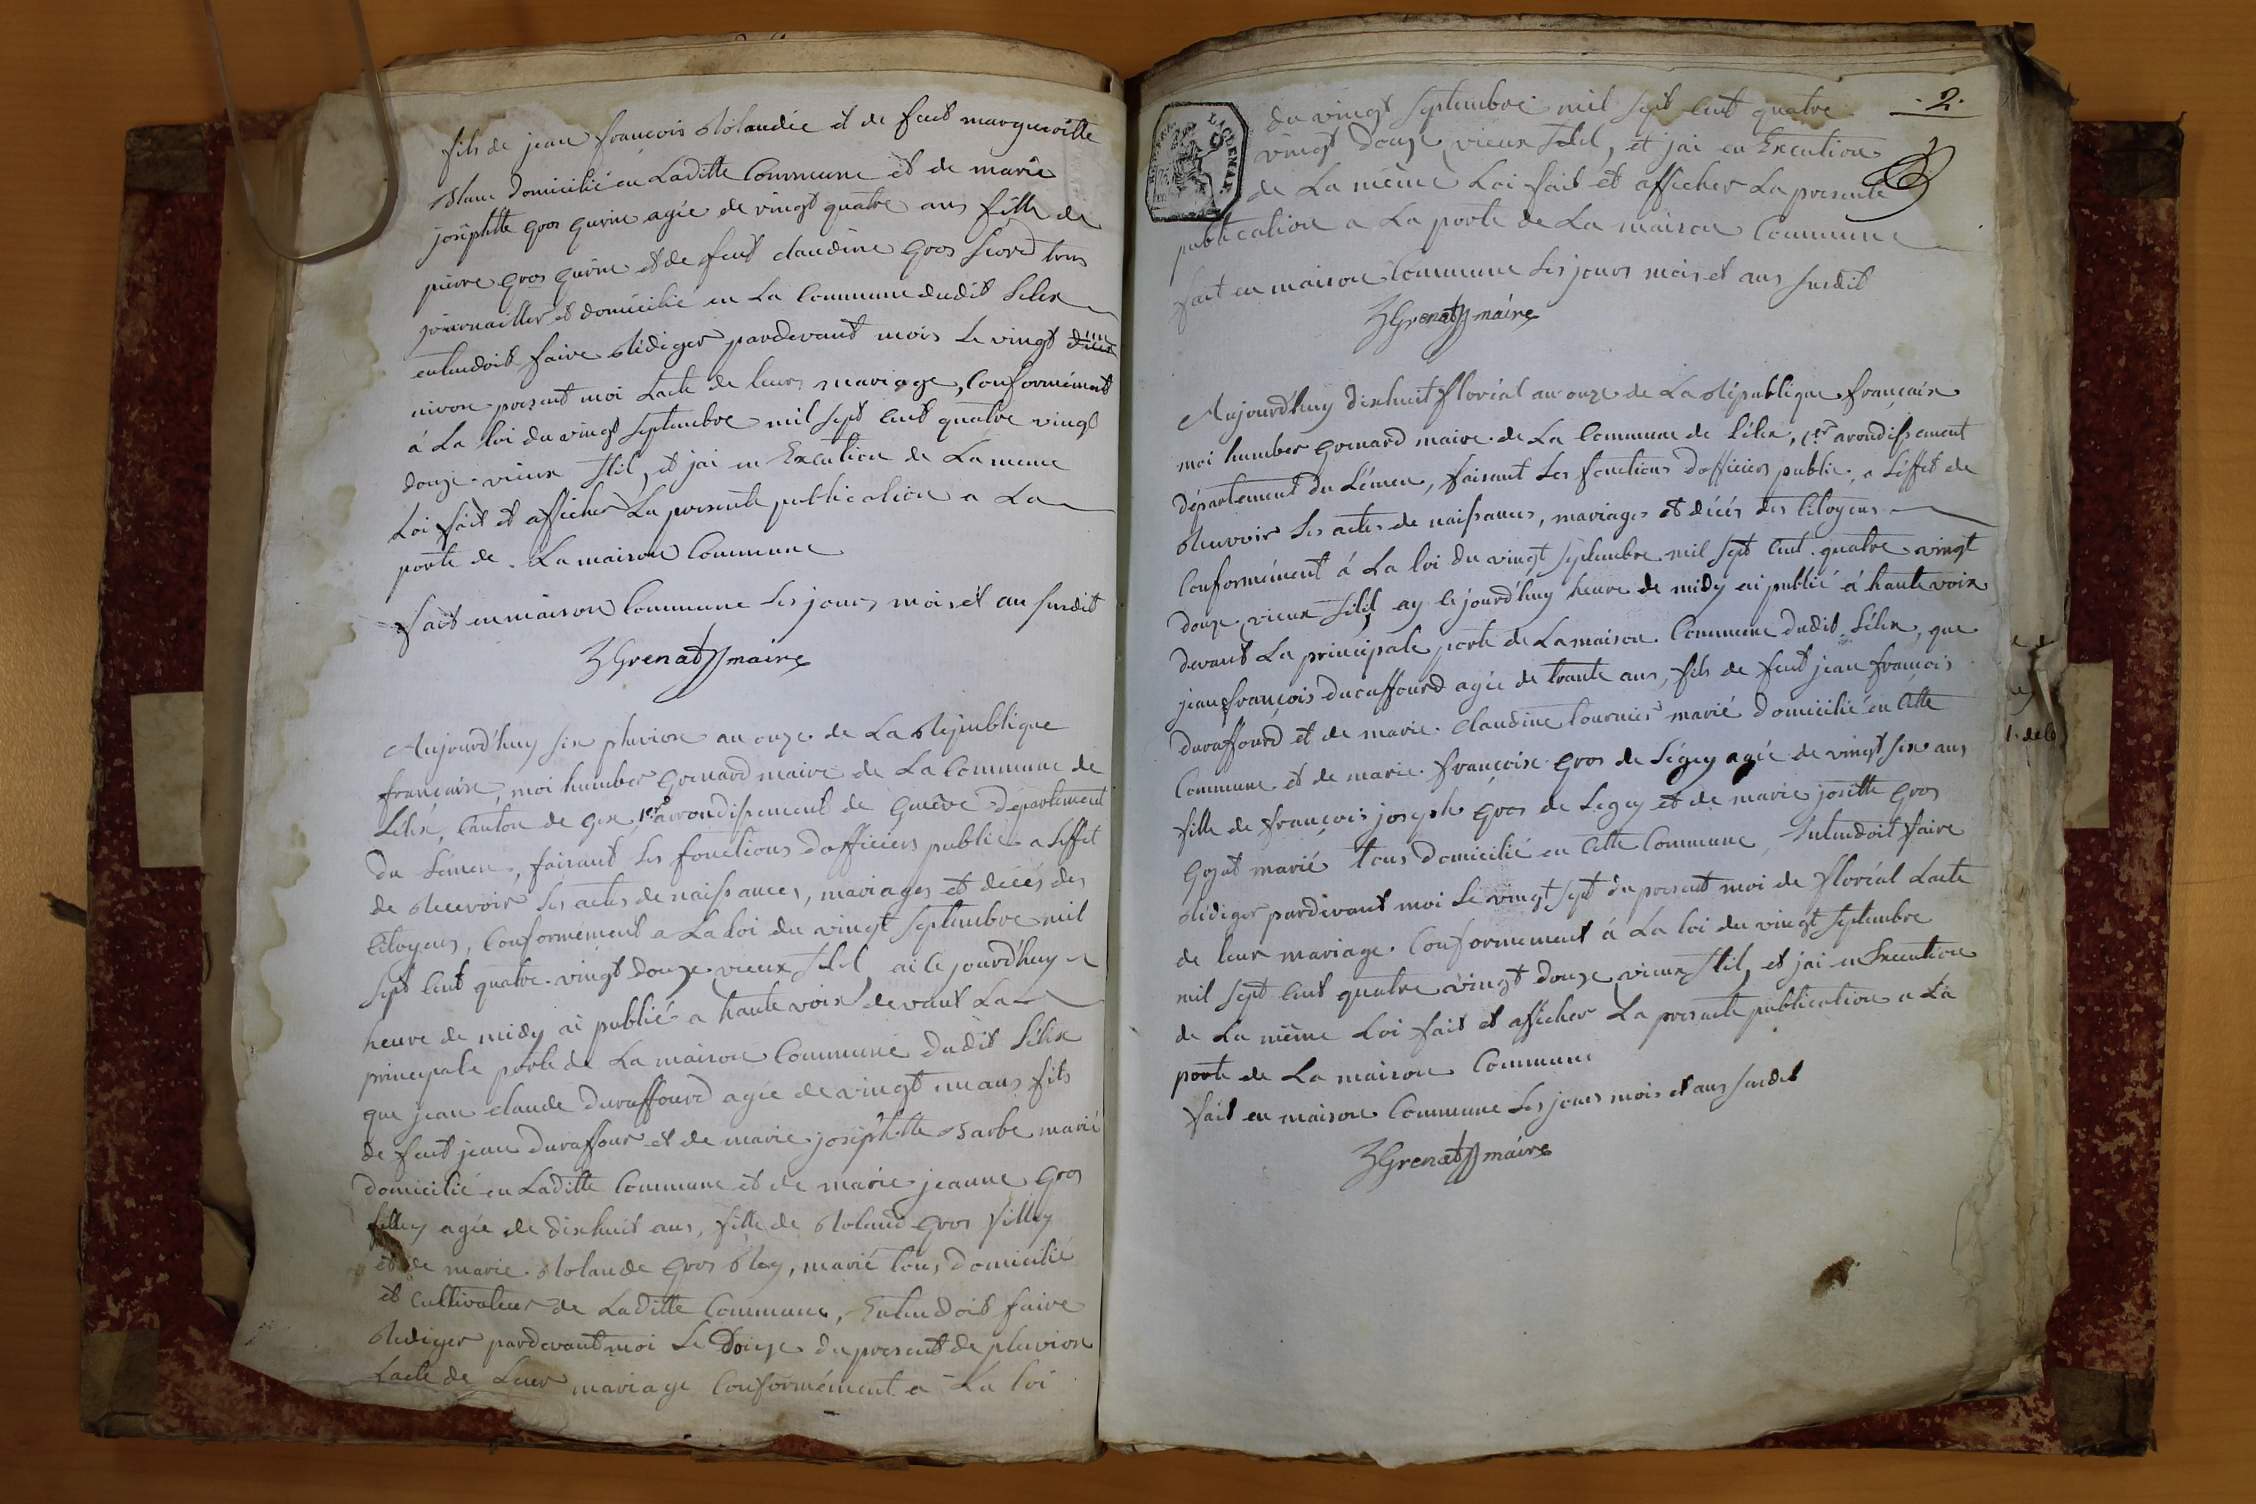 fils de jean françois Rolandée et de feut margueritte
Blanc domicilié en Laditte Commune et de marie
josephtte gros gurin agée de vingt quatre ans fille de
pierre gros gurin et de feut claudine gros fiord tous
journailler et domicilié en La Commune dudit Lelex
entendoit faire Rédiger pardevant mois Le vingt
nivose present moi Lacte de leurs mariage, Conformément
á La loi du vingt septembre mil sept cent quatre vingt
douze vieux stil, et jai en Execution de La meme
Loi fait et afficher La presente publication a La
porte de La maison Commune
fait en maison Commune Les jours mois et an susdit
Grenat maire
Aujourd'huy six pluviose an onze de La République
francaise, moi humber Grenard maire de La Commune de
Lélex, Canton de gex, 1er arrondissement de Genêve département
du Lémen, faisant Les fonctions dofficiers public a Leffet
de Recevoir Les actes de naissances, mariages et décés des
Citoyens, Conformement a La loi du vingt septembre mil
sept cent quatre vingt douze vieux stil ai ce jourd'huy
heure de midy ai publié a haute voix devant La
principale porte de La maison Commune dudit Lélex
que jean claude Duraffourd agée de vingt un ans fils
de feut jean duraffour et de marie josephtte Barbe marié
domicilié en Laditte Commune et de marie jeanne gros
filley agée de dixhuit ans, fille de Roland gros filley
et de marie Rolande gros Rey, marié tous domicilié
et cultivateur de Laditte Commune, Entendoit faire
Rediger pardevant moi Le Douze du present de pluviose
Lacte de Leur mariage Conformément a La loi
2
du vingt septembre mil sept cent quatre
vingt douze vieux stil, et jai en Execution
de La même Loi fait et afficher La presente
publication a La porte de La maison Commune
fait en maison Commune Les jours mois et ans susdit
Grenat maire
Aujourd'huy dixhuit floréal an onze de La République française
moi humber grenard maire de La Commune de Lélex, 1er arondissement
département du Lémen, faisant Les fonctions dofficiers public, a Léffet de
Recevoir Les actes de naissances, mariages et décés des Citoyens
Conformément á La loi du vingt septembre mil sept cent quatre vingt
douze vieux stil, ay ce jourd'huy heure de midy ai publié á haute voix
devant La principale porte de La maison Commune dudit Lélex, que
jean françois Duraffourd agée de trante ans, fils de feut jean françois
duraffourd et de marie claudine tournier marié domicilié en Cette
Commune et de marie françoise gros de Légey agée de vingt six ans
fille de françois joseph gros de Legey et de marie josette gros
gojat marié tous domicilié en Cette Commune, Entendoit faire
Rédiger pardevant moi Le vingt sept du present moi de floréal Lacte
de leur mariage Conformement á La loi du vingt septembre
mil sept cent quatre vingt douze vieux stil, et jai en Execution
de La même Loi fait et afficher La presente publication a La
porte de La maison Commune
fait en maison Commune Les jours mois et ans susdit
Grenat maire